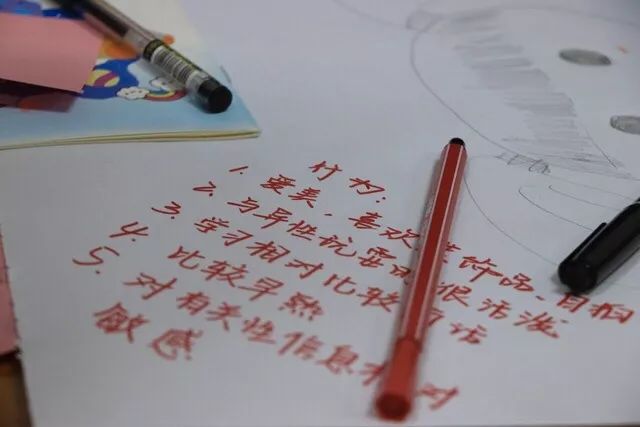 行为:
1. 爱美、喜欢饰品、自拍
2. 与异性说话时很活泼
3. 学习相对比较话
4. 比较早熟
5. 对有关性信息对
敏感